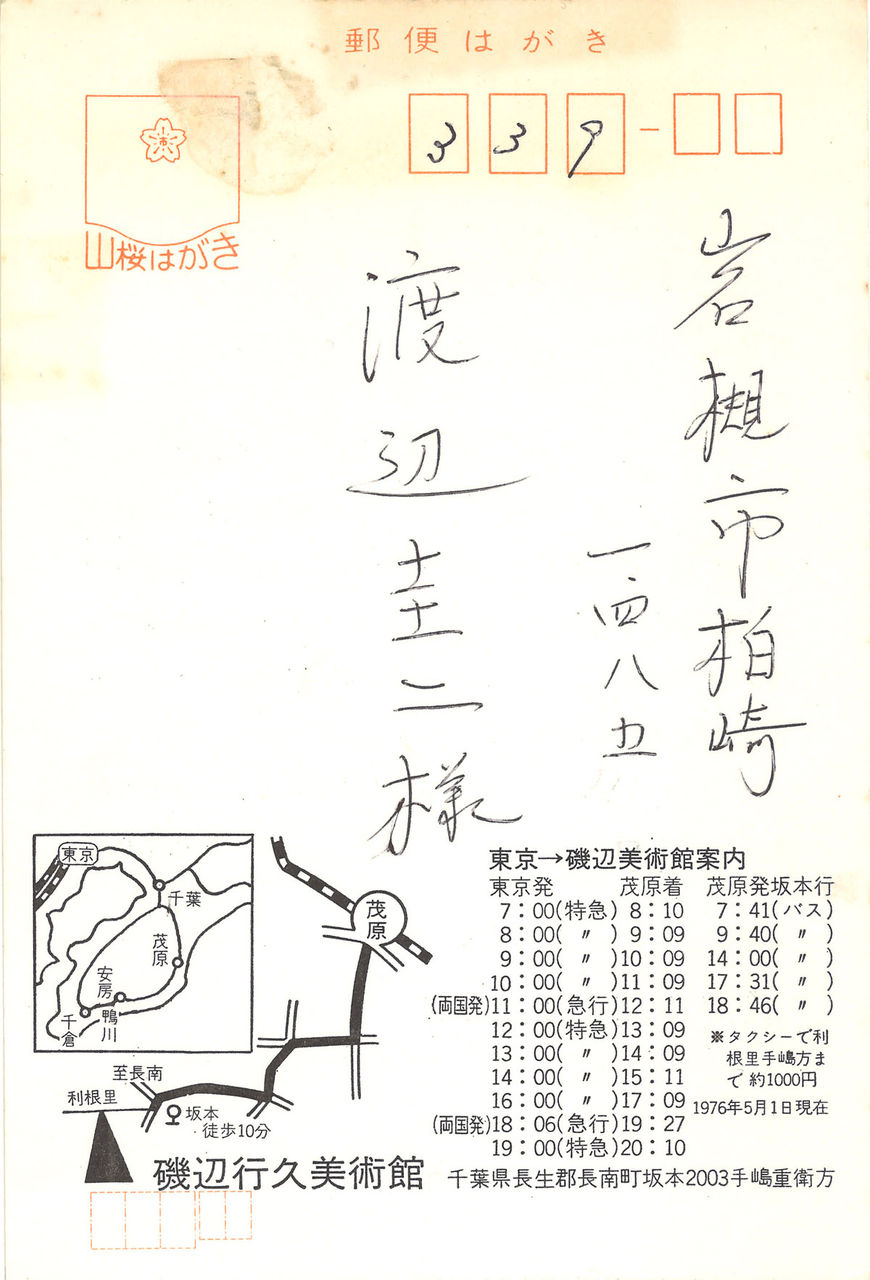 郵便はがき
339-
山桜はがき
岩槻市柏崎
一四八五
渡辺圭二様
東京
千葉
茂原
安房
鴨川
千倉
茂原
至長南
利根里
坂本
徒歩10分
東京→磯辺美術館案内
東京発 茂原着 茂原発坂本行
7:00(特急)8:10 7:41(バス)
8:00(〃)9:09 9:40(〃)
9:00(〃)10:09 14:00(〃)
10:00(〃)11:09 17:31(〃)
(両国発)11:00(急行)12:11 18:46(〃)
12:00(特急)13:09
13:00(〃)14:09
14:00(〃)15:11
16:00(〃)17:09
(両国発)18:06(急行)19:27
19:00(特急)20:10
※タクシーで利
根里手嶋方ま
で約1000円
1976年5月1日現在
磯辺行久美術館
千葉県長生郡長南町坂本2003手嶋重衛方